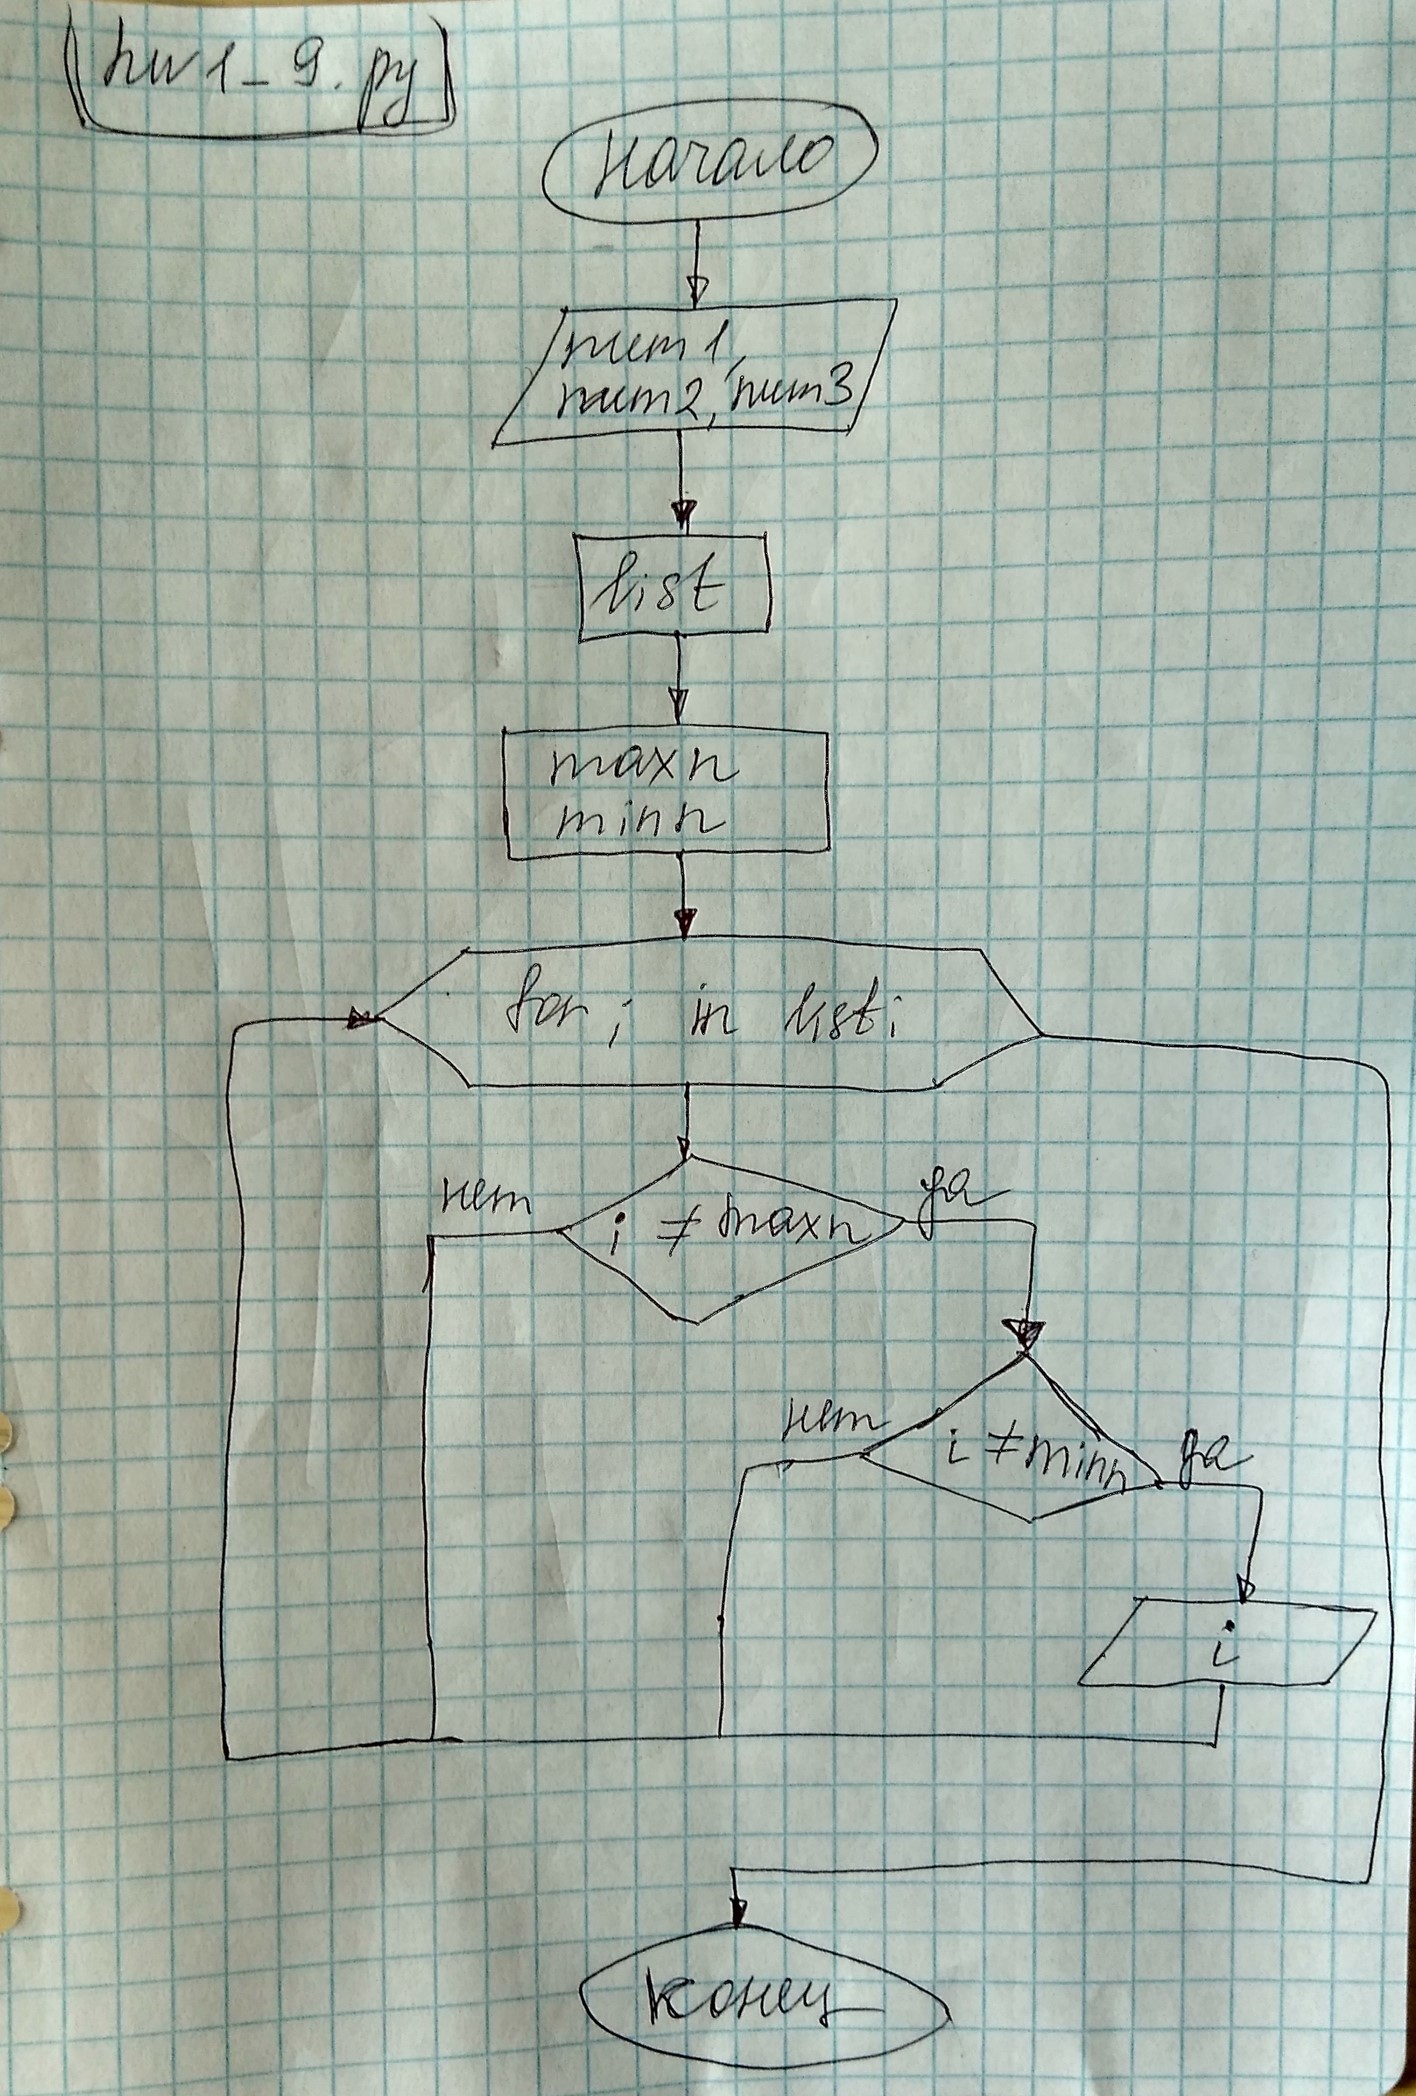 hw1_9.py
Начало
num1,
num2, num3
list
maxn
minn
for i in list:
нет
i ≠ maxn
да
нет
i ≠ minn
да
i
Конец